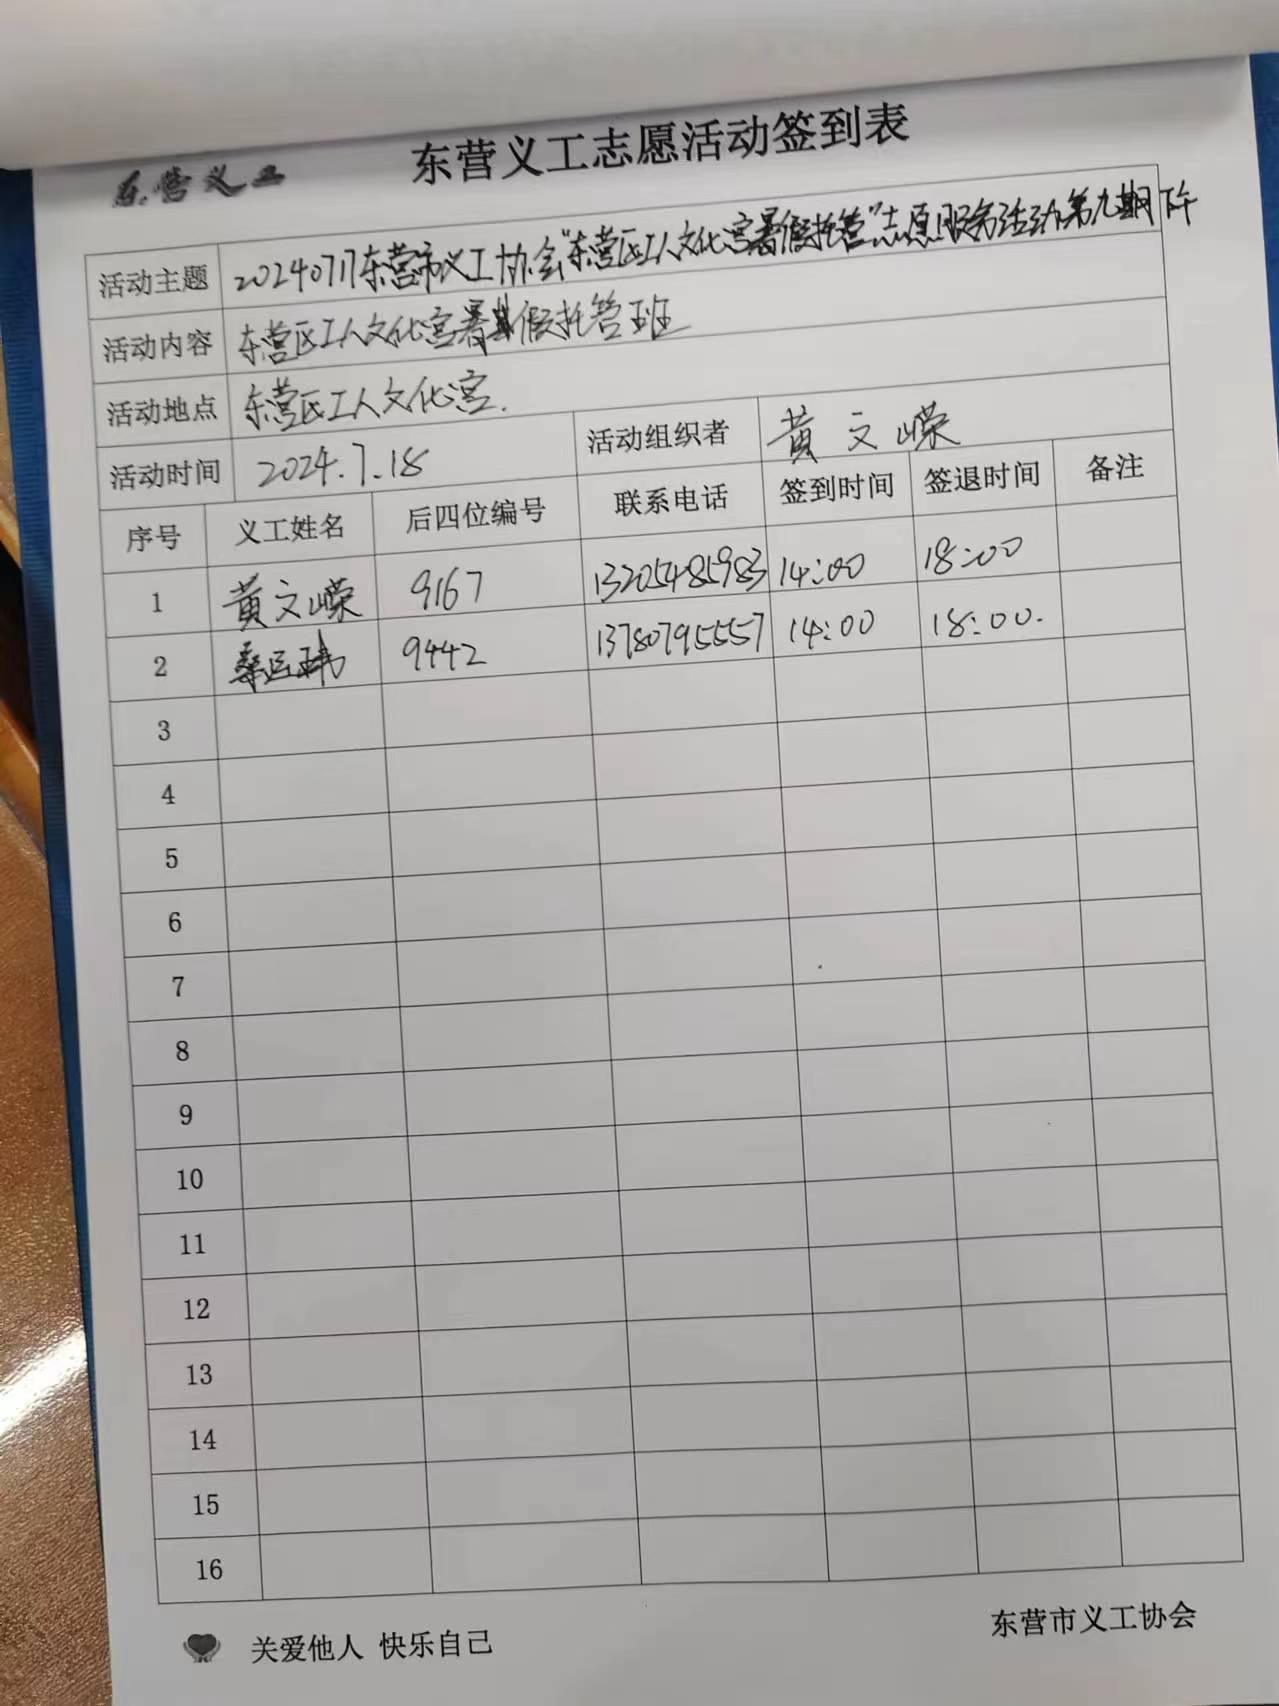 东营义工
东营义工志愿活动签到表
活动主题 20240717东营市义工协会"东营区工人文化宫暑假托管"志愿服务活动第九期下午
活动内容 东营区工人文化宫暑假托管班
活动地点 东营区工人文化宫.
活动时间 2024.7.18 活动组织者 黄文嵘
序号 义工姓名 后四位编号 联系电话 签到时间 签退时间 备注
1 黄文嵘 9167 13205485983 14:00 18:00
2 9442 13780795557 14:00 18:00.
3
4
5
6
7
8
9
10
11
12
13
14
15
16
关爱他人 快乐自己 东营市义工协会